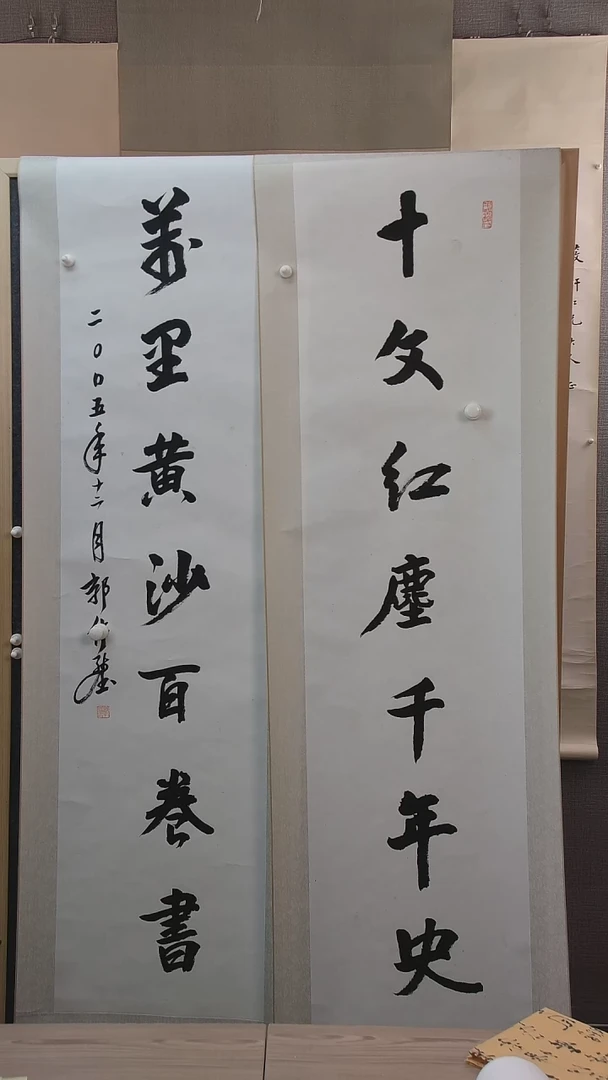 十丈红塵千年史
萬里黄沙百卷書
二〇〇五年十二月郭